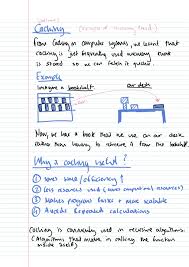 Caching
From Caching in computer systems, we learnt that
caching is just frequently used memory that
is stored so we can fetch it quicker
Example
Imagine a bookshelf
our desk
Now, we have a book that we use on our desk
rather than having to retrieve it from the bookshelf
Why is caching useful?
① Saves time / efficiency ↑
② Less resources used (saves computational resources)
③ Makes programs faster + more scalable
④ Avoids repeated calculations
Caching is commonly used in recursive algorithms.
(Algorithms that involve in calling the function
inside itself)